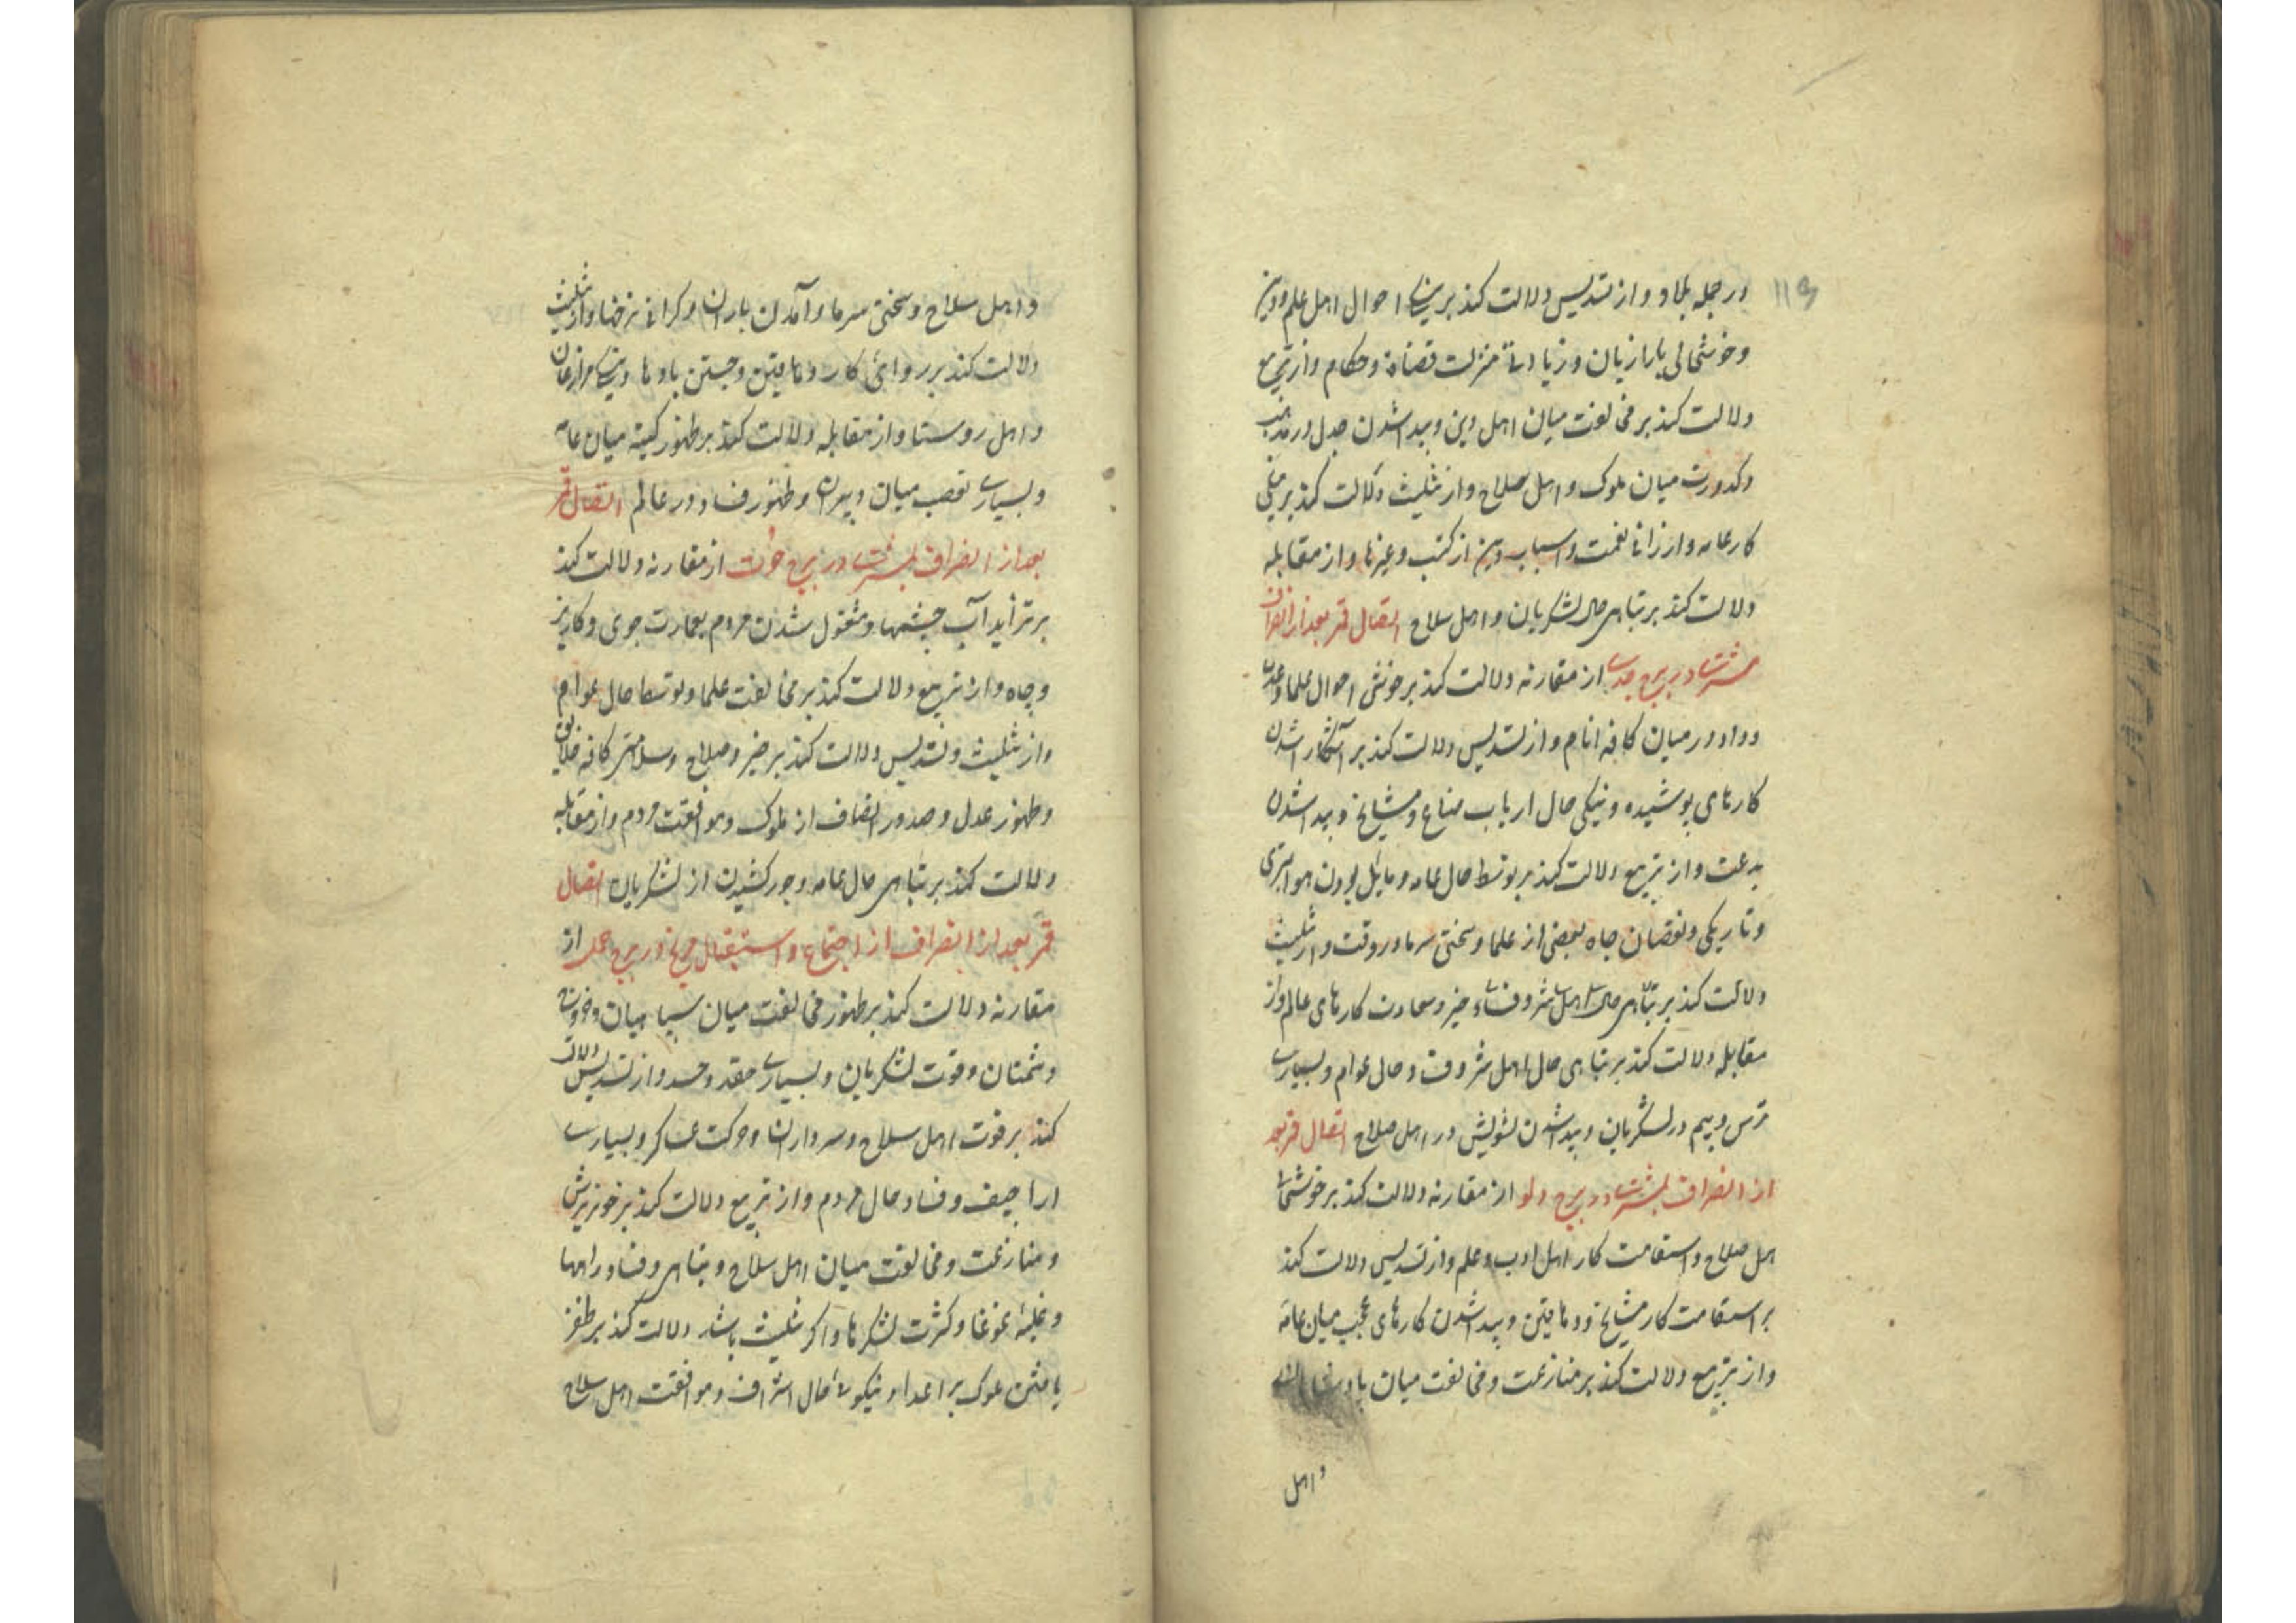 در جمله بلاد و از تسدیس دلالت کند بر نیکی احوال اهل علم و دین
و خوشحالی بازاریان و زیادتی منزلت قضاة و حکام و از تربیع
دلالت کند بر مخالفت میان اهل دین و پیدا شدن جدل در مذهب
و کدورت میان ملوک و اهل صلاح و از تثلیث دلالت کند بر نیکی
کار عامه و ارزانی نعمت و اسباب دین از کتب و غیرها و از مقابله
دلالت کند بر تباهی حال لشکریان و اهل سلاح اتصال قمر بعد از انصراف
مشتری در برج جدی از مقارنه دلالت کند بر خوشی احوال علما و عدل
و داد در میان کافه انام و از تسدیس دلالت کند بر آشکارا شدن
کارهای پوشیده و نیکی حال ارباب صناع و مشایخ و پیدا شدن
بدعت و از تربیع دلالت کند بر توسط حال عامه و مایل بودن هوا بتری
و تاریکی و نقصان جاه بعضی از علما و سختی سرما در وقت و از تثلیث
دلالت کند بر تباهی حال اهل شر و فساد و خیر و سعادت کارهای عالم و از
مقابله دلالت کند بر تباهی حال اهل شر و فساد و حال عوام و بسیاری
ترس و بیم در لشکریان و پیدا شدن تشویش در اهل صلاح اتصال قمر بعد
از انصراف بمشتری در برج دلو از مقارنه دلالت کند بر خوشحالی
اهل صلاح و استقامت کار اهل ادب و علم و از تسدیس دلالت کند
بر استقامت کار مشایخ و دهاقین و پیدا شدن کارهای عجب میان عامه
و از تربیع دلالت کند بر منازعت و مخالفت میان پادشاهان
و اهل
و اهل سلاح و سختی سرما و آمدن باران و گرانی نرخها و از تثلیث
دلالت کند بر روائی کار دهاقین و جستن بادها و نیکی مزارعان
و اهل روستا و از مقابله دلالت کند بر ظهور کینه میان عامه
و بسیاری تعصب میان دبیران و ظهور فساد در عالم اتصال قمر
بعد از انصراف بمشتری در برج حوت از مقارنه دلالت کند
بر تزاید آب چشمها و مشغول شدن مردم بعمارت جوی و کاریز
و چاه و از تربیع دلالت کند بر مخالفت علما و توسط حال عوام
و از تثلیث و تسدیس دلالت کند بر خیر و صلاح و سلامتی کافه خلایق
و ظهور عدل و صدور انصاف از ملوک و موافقت مردم و از مقابله
دلالت کند بر تباهی حال عامه و جور کشیدن از لشکریان اتصال
قمر بعد از انصراف از اجتماع و استقبال مریخ در برج حمل از
مقارنه دلالت کند بر ظهور مخالفت میان سپاهیان و خروج
دشمنان و قوت لشکریان و بسیاری حقد و حسد و از تسدیس دلالت
کند بر قوت اهل سلاح و سرداران و حرکت عساکر و بسیاری
اراجیف و فساد حال مردم و از تربیع دلالت کند بر خونریزش
و منازعت و مخالفت میان اهل سلاح و تباهی و فساد راهها
و غلبه غوغا و کثرت لشکرها و اگر تثلیث باشد دلالت کند بر ظفر
یافتن ملوک بر اعداء و نیکوئی حال اشراف و موافقت اهل سلاح